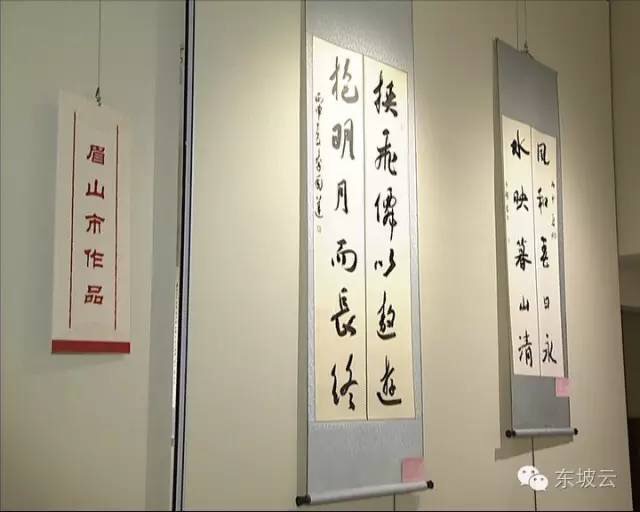 眉山市作品
挟飛僊以遨遊
抱明月而長終
風和春日永
水映暮山清
东坡云